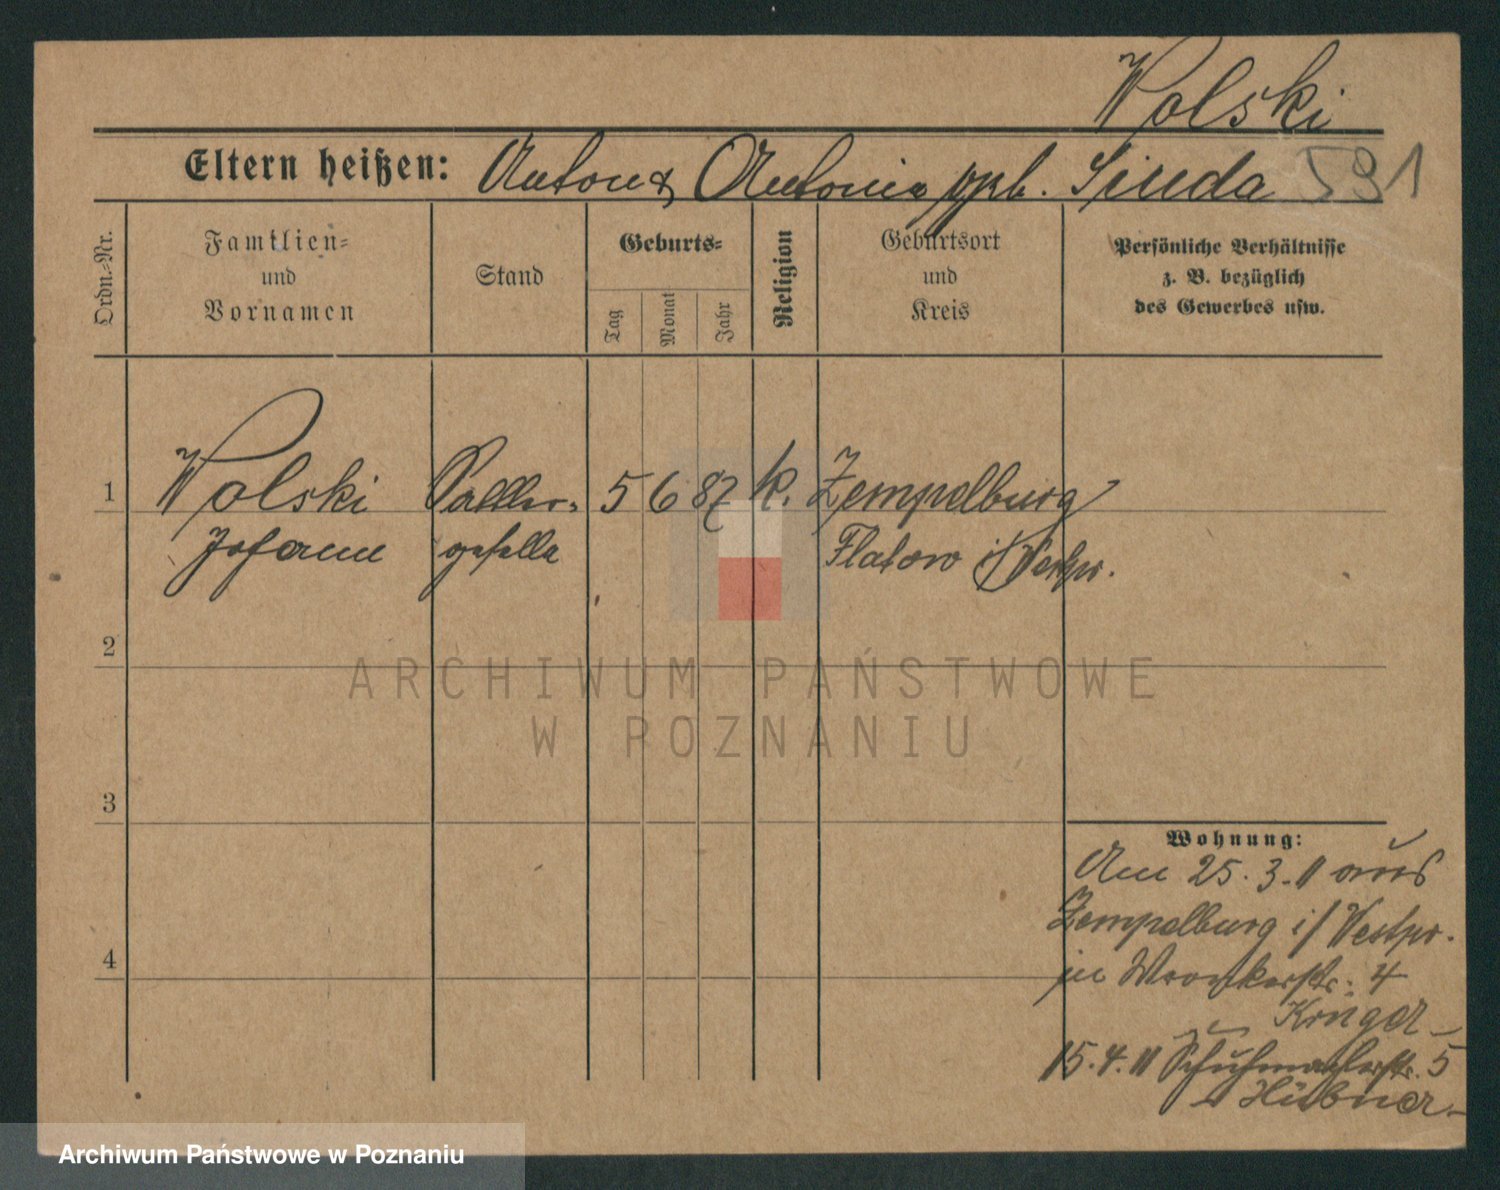 Wolski
Eltern heißen: Anton & Antonie geb. Sinda 591
Ordn.-Nr.
Familien-
und
Vornamen
Stand
Geburts-
Tag
Monat
Jahr
Religion
Geburtsort
und
Kreis
Persönliche Verhältnisse
z. B. bezüglich
des Gewerbes usw.
1 Wolski Sattler- 5 6 87 k. Zempelburg
Johann geselle Flatow i/Westpr.
2
ARCHIWUM PAŃSTWOWE
W POZNANIU
3
Wohnung:
Am 25.3.11 aus
Zempelburg i/Westpr.
in Wronkerstr. 4
15.4.11 Schuhmacherstr. 5
Hübner
4
Archiwum Państwowe w Poznaniu